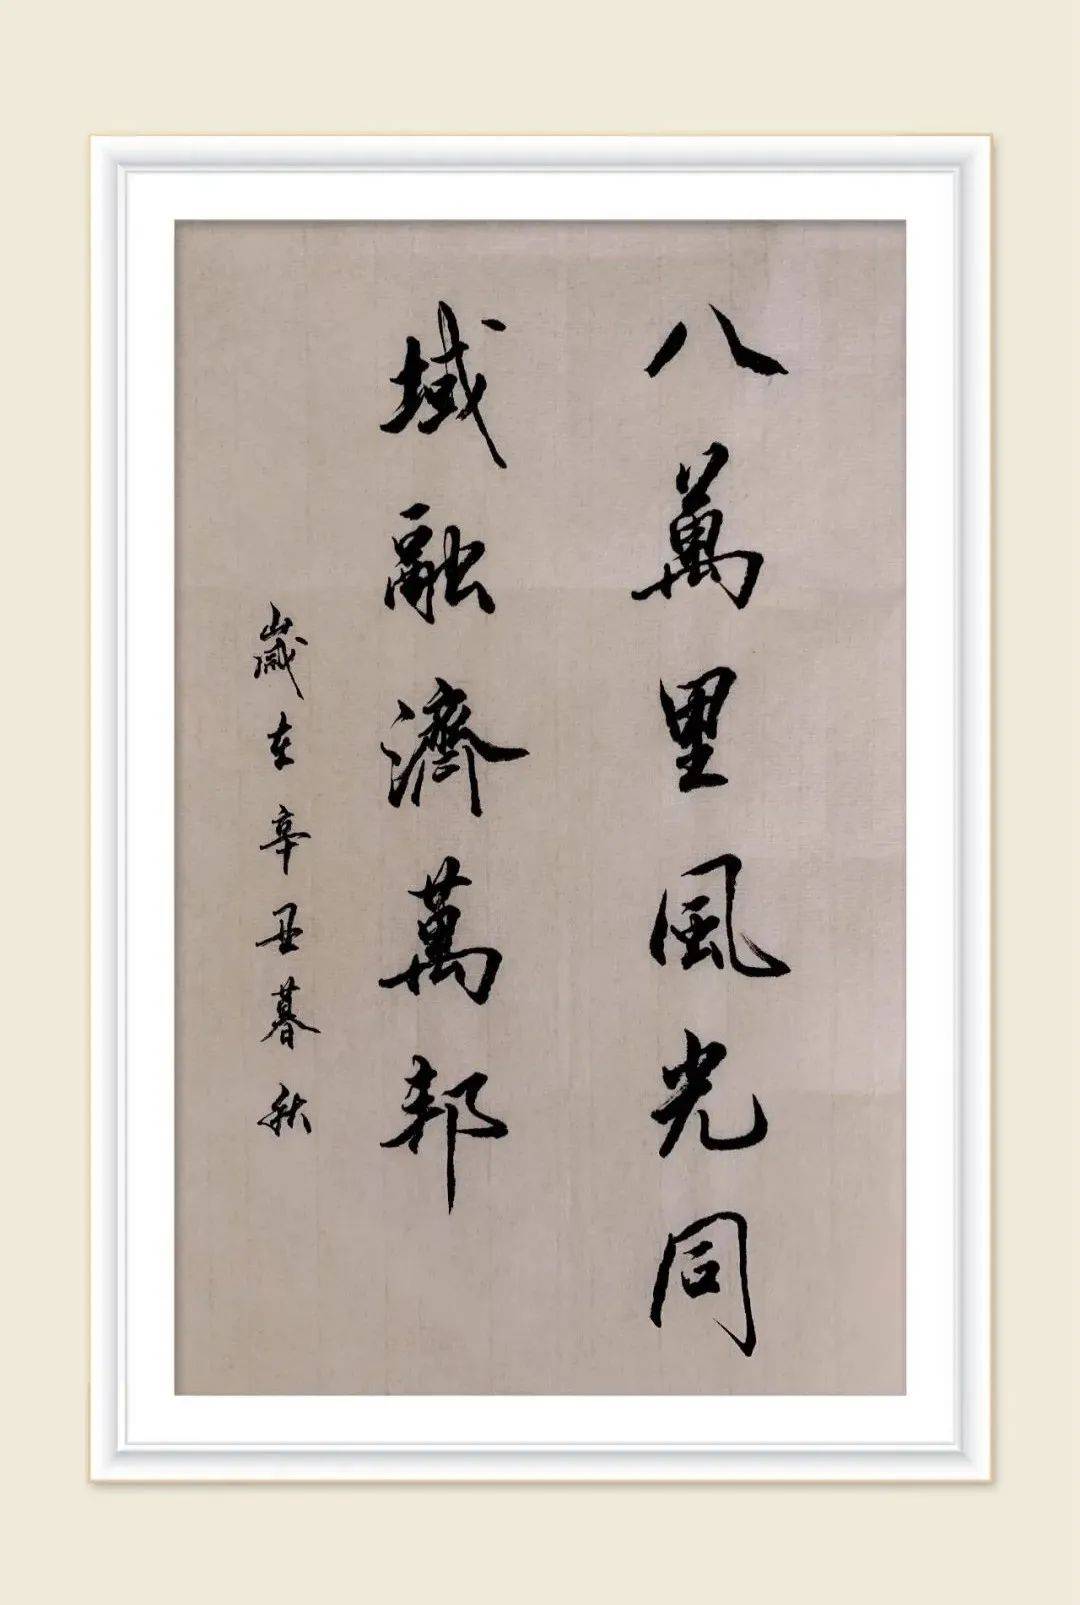 八萬里風光同
域融濟萬邦
歲在辛丑暮秋